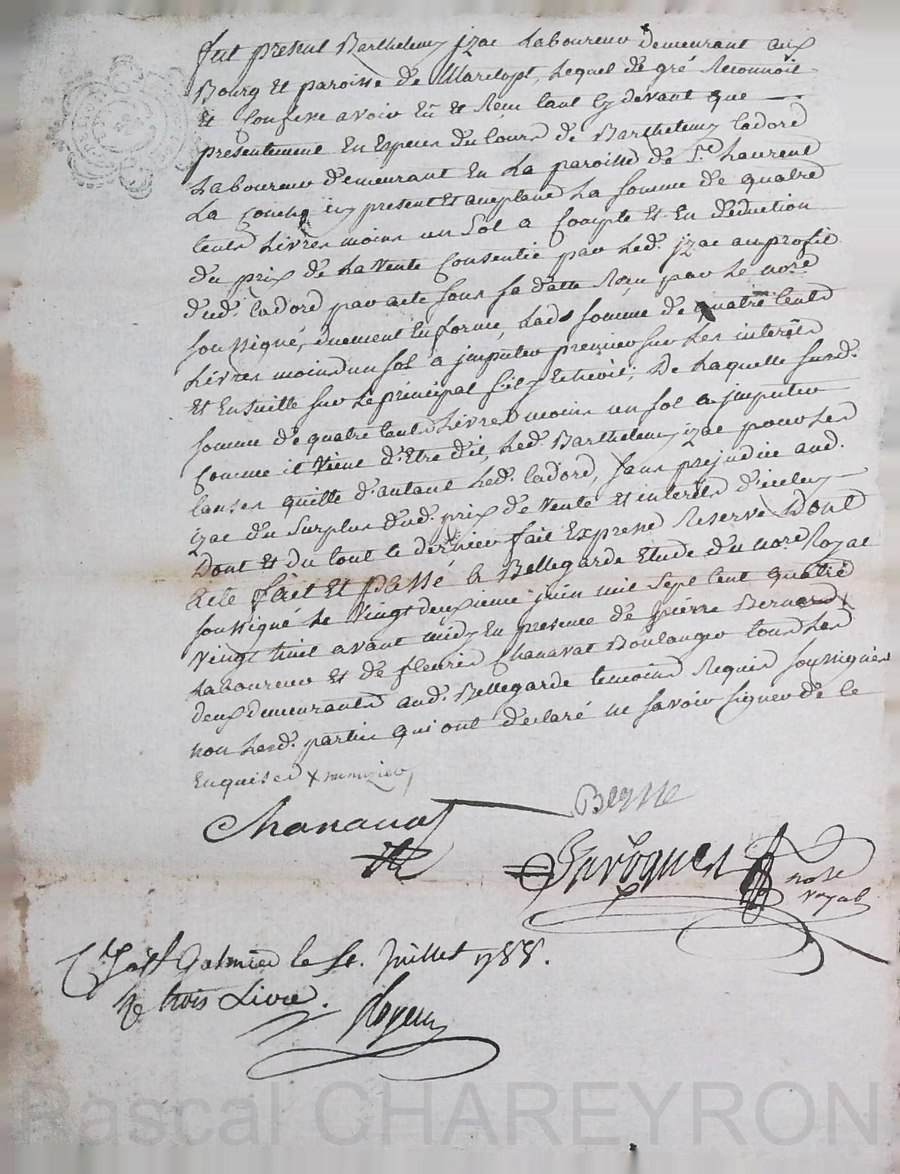 fut present Barthelemy jzac Laboureur demeurant aux
Bourg et paroisse de Marclopt, Lequel de gré Reconnoit
et Confesse avoir Eu et Recu tant cy devant que
presentement En Especes du Cours de Barthelemy Cadord
Laboureur demeurant En La paroisse de St Laurent
La Conche icy present et aceptant La Somme de quatre
Cents Livres moins un Sol a Compte et En deduction
du prix de La Vente Consentie par Led. jzac au profit
dud. Cadord par acte sous sa datte Recu par Le nore
soussigné, duement En forme, Lad. somme de quatre Cents
Livres moins un sol a jmputer premier sur Les interêts
Et En suitte sur Le principal, De Laquelle susd.
somme de quatre Cents Livres moins un sol a jmputer
Comme il Vient d'Etre dit, Led. Barthelemy jzac pour Les
Causes quitte d'autant Led. Cadord, sans prejudice aud.
jzac du Surplus dud. prix de Vente et interêts d'iceluy
Dont et du tout le dernier fait Expresse Reserve Dont
acte fait Et passé a Bellegarde Etude du nore Royal
soussigné Le Vingt deuxieme juin mil Sept Cent quatre
Vingt huit avant midy En presence de pierre Bernard
Laboureur et de fleury Chanavat Boulanger tous Les
deux demeurants aud. Bellegarde temoins Requis soussignés
non Lesd. parties qui ont declaré ne savoir signer de ce
Enquises
Chanavat
nore
royal
Galmier le Juillet 1788.
Re trois Livre.
Rascal CHAREYRON